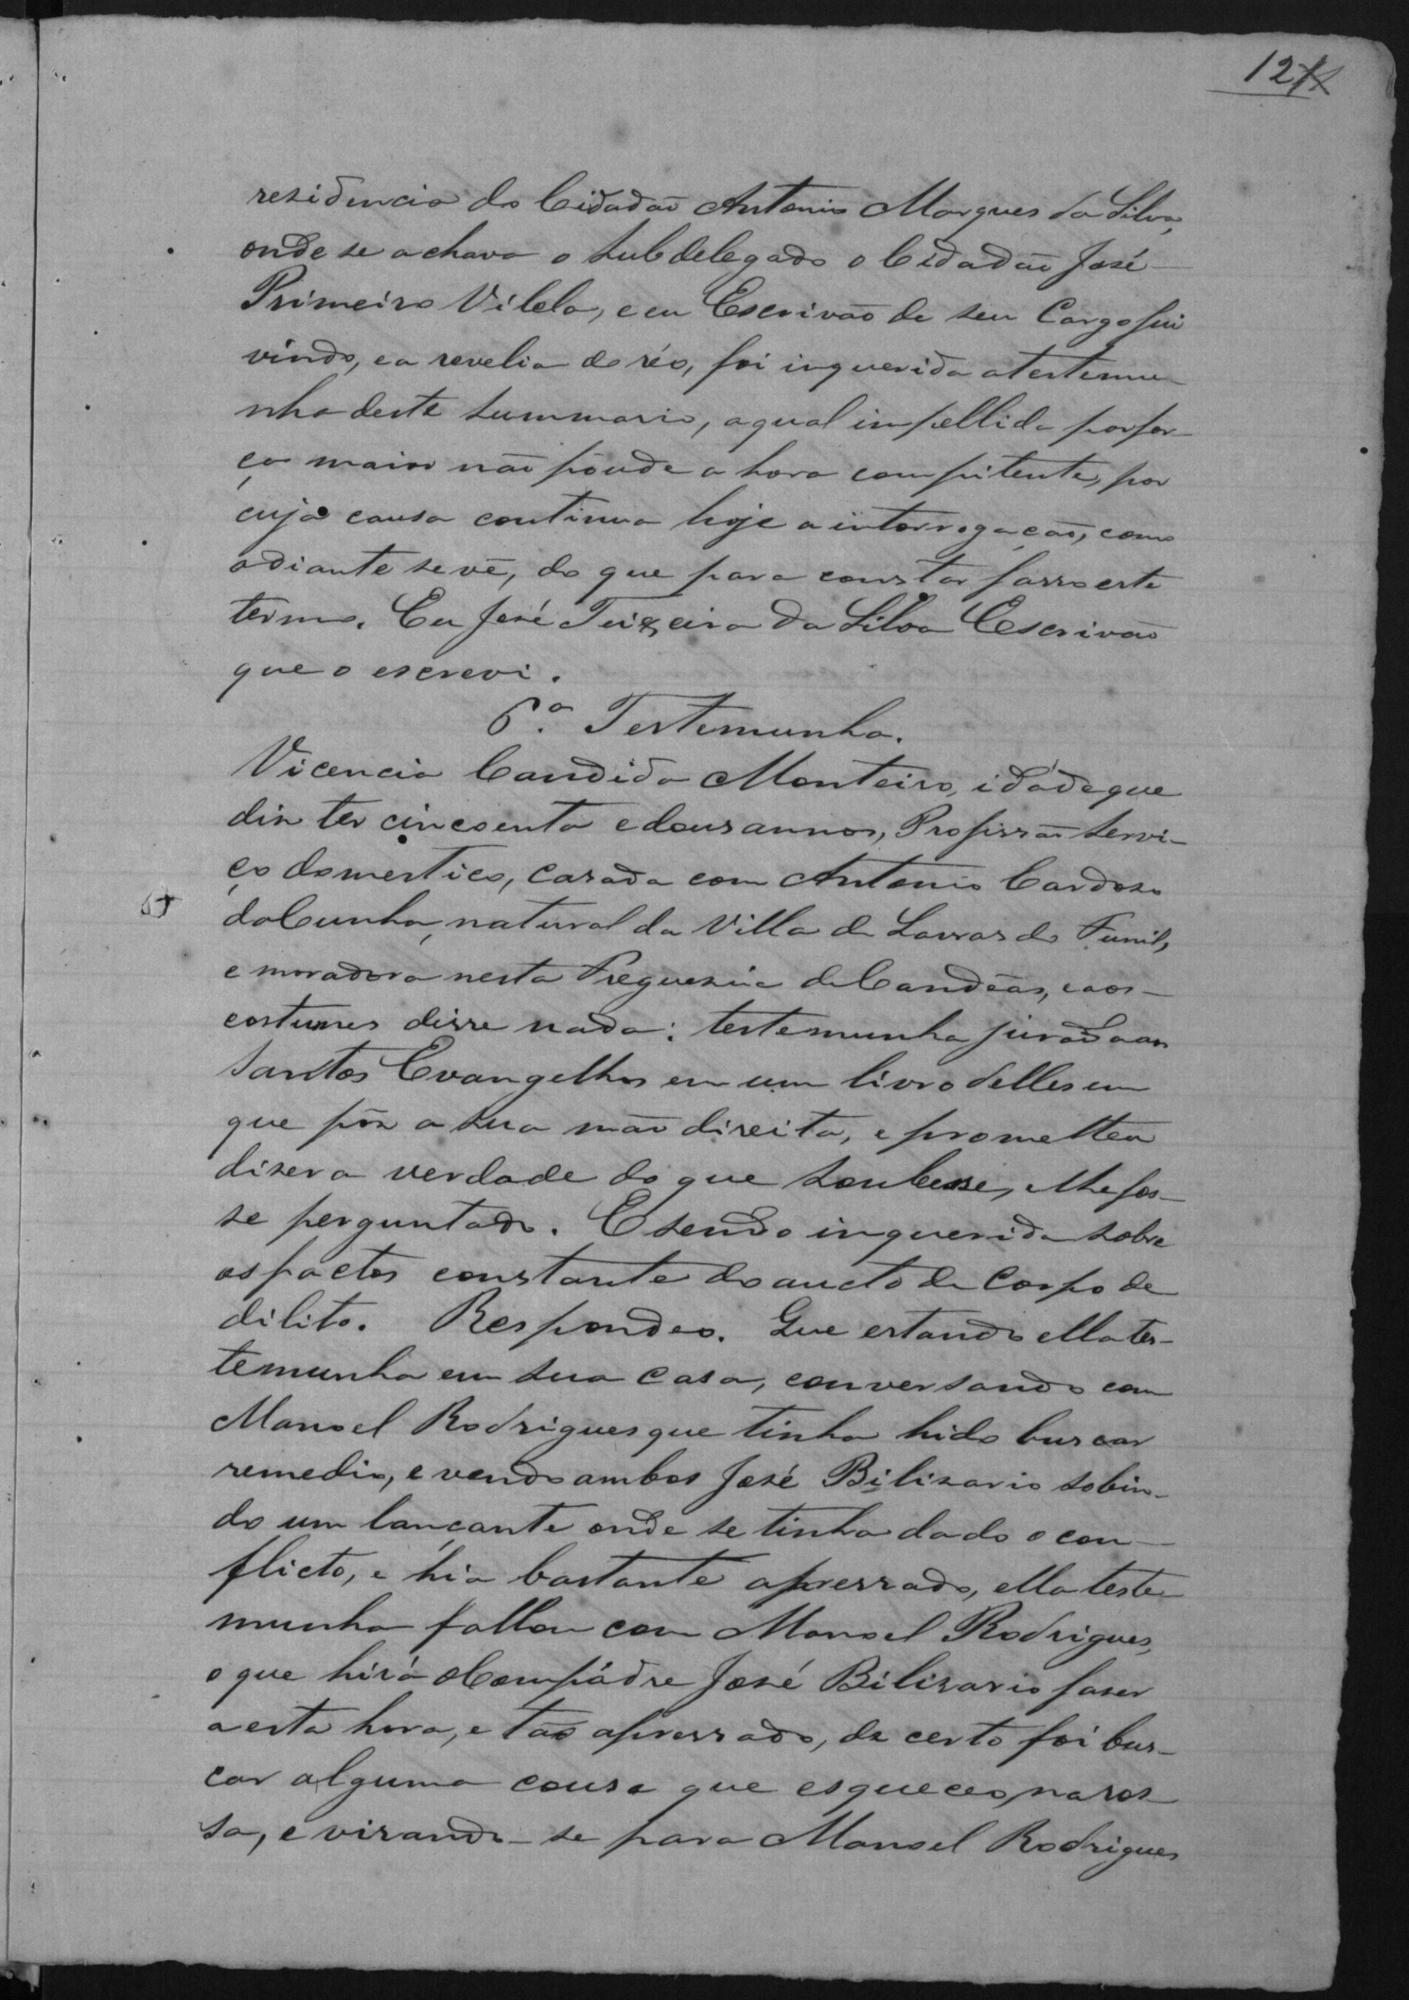 121
residencia do Cidadão Antonio Marques da Silva,
onde se achava o Subdelegado o Cidadão José
Primeiro Vilela, e eu Escrivão de seu Cargo fui
vindo, e a revelia do réo, foi inquerida a testemu-
nha deste summario, a qual impellida por for-
ça maior não poude a hora compitente, por
cuja causa continua hoje a interrogação, como
adiante se vê, do que para constar fasso este
termo. Eu José Teixeira da Silva Escrivão
que o escrevi.
6ª. Testemunha.
Vicencia Candida Monteiro, idade que
diz ter cincoenta e dous annos, Profissão servi-
ço domestico, casada com Antonio Cardoso
da Cunha, natural da Villa de Lavras do Funil,
e moradora nesta Freguesia de Candêas, e aos
costumes disse nada: testemunha jurada aos
Santos Evangelhos em um livro delles em
que pôz a sua mão direita, e prometteu
diser a verdade do que soubesse, e lhe fos-
se perguntado. E sendo inquerida sobre
os factos constante do aucto de Corpo de
dilito. Respondeo. Que estando ella tes-
temunha em sua casa, conversando com
Manoel Rodrigues que tinha hido buscar
remedio, e vendo ambos José Bilizario sobin-
do um lançante onde se tinha dado o con-
flicto, e hia bastante apressado, ella teste
munha fallou com Manoel Rodrigues,
o que hirá o Compádre José Bilisario faser
a esta hora, e tão apressado, de certo foi bus-
car alguma cousa que esqueceo na ros-
sa, e virando-se para Manoel Rodrigues